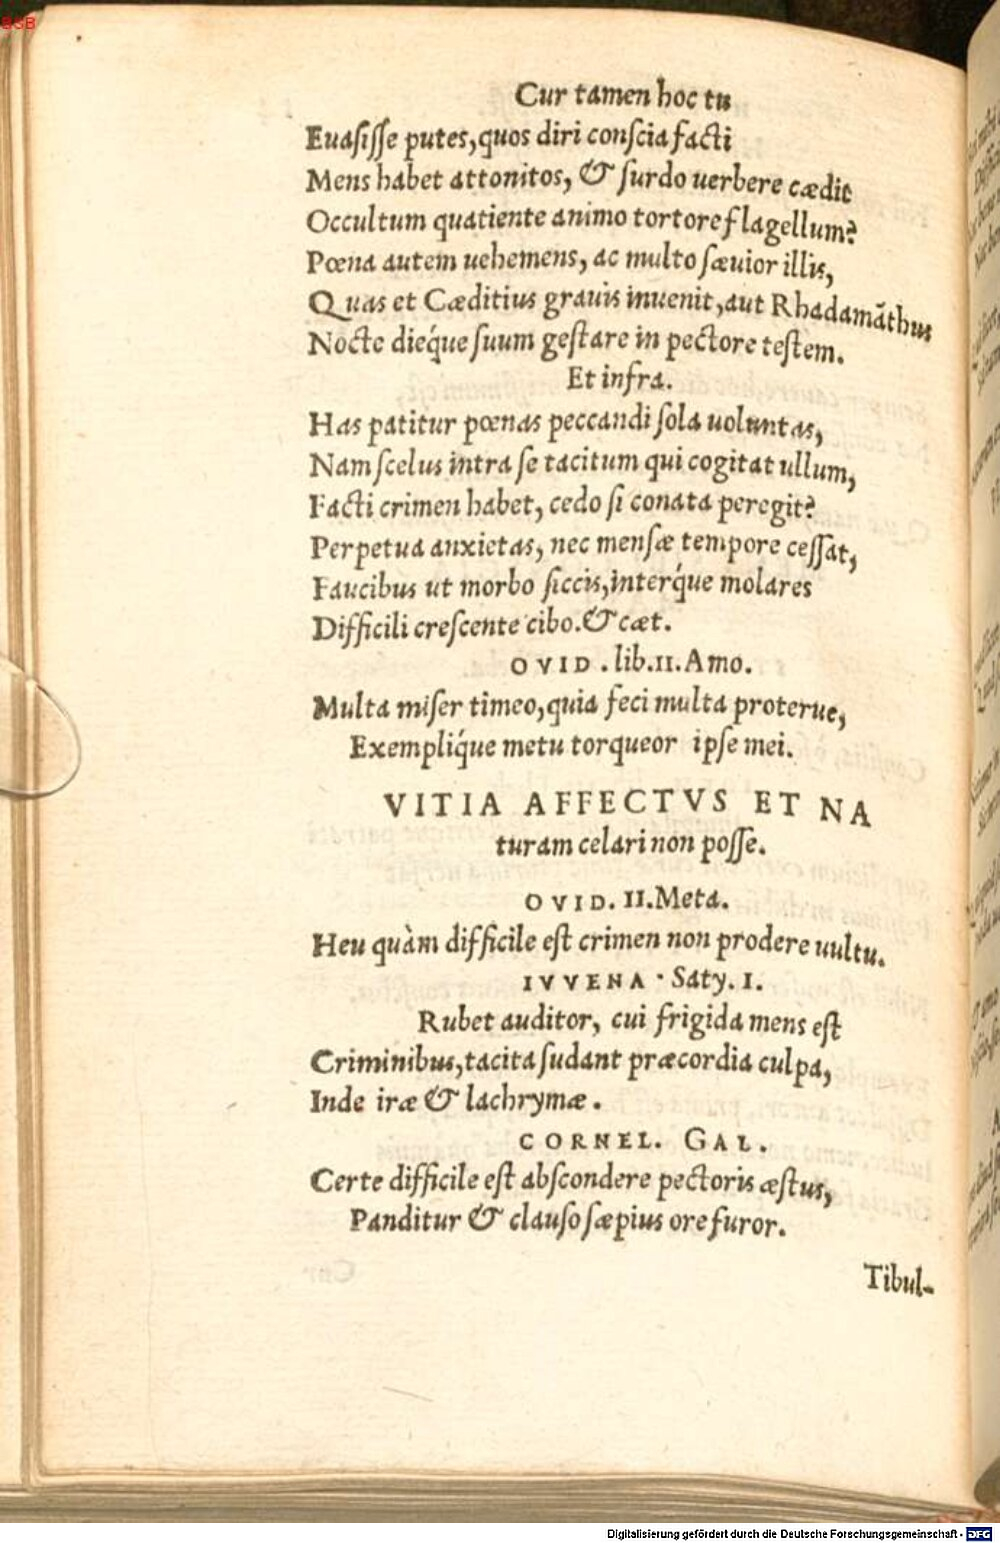 BSB
Cur tamen hoc tu
Euasisse putes, quos diri conscia facti
Mens habet attonitos, & surdo uerbere cædit
Occultum quatiente animo tortore flagellum?
Pœna autem uehemens, ac multo sæuior illis,
Quas et Cæditius grauis inuenit, aut Rhadamãthus
Nocte dieq́ue suum gestare in pectore testem.
Et infra.
Has patitur pœnas peccandi sola uoluntas,
Nam scelus intra se tacitum qui cogitat ullum,
Facti crimen habet, cedo si conata peregit?
Perpetua anxietas, nec mensæ tempore cessat,
Faucibus ut morbo siccis, interq́ue molares
Difficili crescente cibo. & cæt.
OVID. lib. II. Amo.
Multa miser timeo, quia feci multa proterue,
Exempliq́ue metu torqueor ipse mei.
VITIA AFFECTVS ET NA
turam celari non posse.
OVID. II. Meta.
Heu quàm difficile est crimen non prodere uultu.
IVVENA. Saty. I.
Rubet auditor, cui frigida mens est
Criminibus, tacita sudant præcordia culpa,
Inde iræ & lachrymæ.
CORNEL. GAL.
Certe difficile est abscondere pectoris æstus,
Panditur & clauso sæpius ore furor.
Tibul-
Digitalisierung gefördert durch die Deutsche Forschungsgemeinschaft - DFG